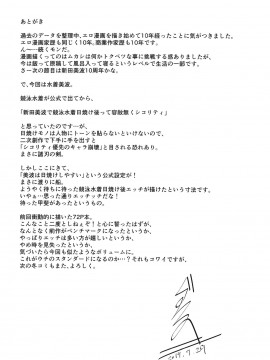 あとがき
過去のデータを整理中、エロ漫画を描き始めて10年経ったことに気がつきました。
エロ漫画家も同じく10年。商業作家歴も10年です。
ん…続くモンだ。
漫画描くってのはムカシは何かトクベツな事に挑戦する感ありましたが、
今は座って撚翻して風呂入って寝るというレベルで生活の一部です。
さーて次の節目は新田美波10周年かな。
で、今回は水着美波。
競泳水着が公式で出てから、
「新田美波で競泳水着日焼け後って容赦無くシコリティ」
と思っていたのです…が、
日焼けモノは人物にトーンを貼らないといけないので、
二次創作で下手に手を出すと
「シコリティ優先のキャラ崩壊」と目される恐れあり。
まさに諸刃の剣。
しかしここにきて、
「美波は日焼けしやすい」という公式設定が！
まさに渡りに船。
ようやく待ちに待った競泳水着日焼け後エッチが描けたという寸法です。
いやぁ…思った通りエッチッチだな！
待った甲斐があったというもの。
前回衝動的に描いた72P本。
こんなこと二度としねぇぞ！と心に誓ったはずが、
なんとなく前作がベンチマークになったというか、
やっぱりエッチは多い方が嬉しいというか、
やめ時を見失ったというか、
気づいたら今回も似たようなボリュームに。
これがウチのスタンダードになるのか…？それもコワイですが、
次の冬コミもまた、よろしく。